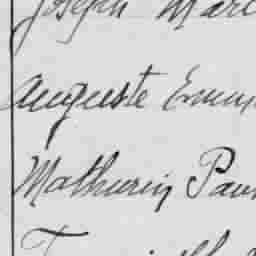 Joseph Marc
Auguste Emm
Mathurin Pau